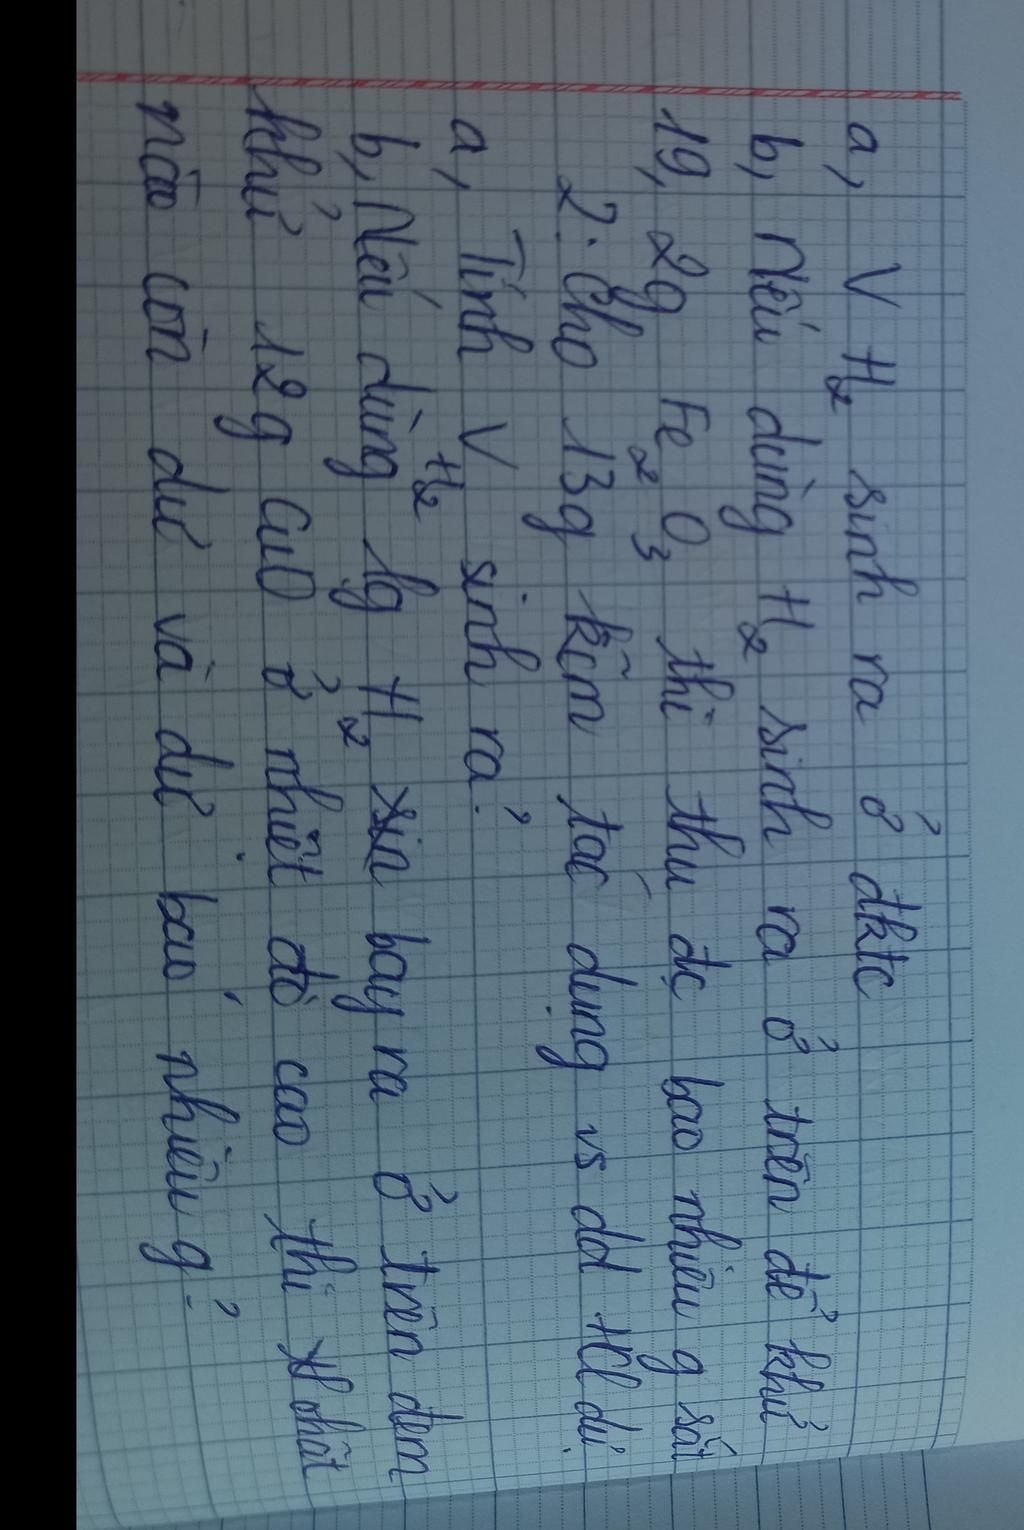 a, V H2 sinh ra ở đktc
b, Nếu dùng H2 sinh ra ở trên để khử
19,2g Fe2O3 thì thu đc bao nhiêu g sắt
2. Cho 13g kẽm tác dụng vs dd HCl dư.
a, Tính V H2 sinh ra?
b, Nếu dùng lg H2 bay ra ở trên đem
khử 12g CuO ở nhiệt độ cao thì chất
nào còn dư và dư bao nhiêu g?